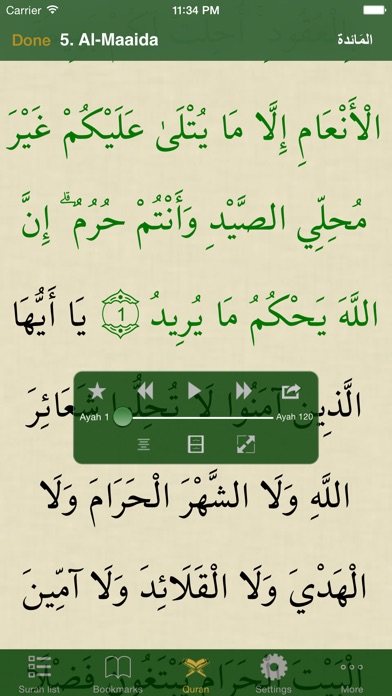 Carrier 11:34 PM
Done 5. Al-Maaida المَائدة
الْأَنْعَامِ إِلَّا مَا يُتْلَىٰ عَلَيْكُمْ غَيْرَ
مُحِلِّي الصَّيْدِ وَأَنْتُمْ حُرُمٌ ۗ إِنَّ
اللَّهَ يَحْكُمُ مَا يُرِيدُ 1 يَا أَيُّهَا
الَّذِينَ آمَنُوا لَا تُحِلُّوا شَعَائِرَ
Ayah 1 Ayah 120
اللَّهِ وَلَا الشَّهْرَ الْحَرَامَ وَلَا
الْهَدْيَ وَلَا الْقَلَائِدَ وَلَا آمِّينَ
الْبَيْتَ الْحَرَامَ يَبْتَغُونَ فَضْلًا
Surah list Bookmarks Quran Settings More